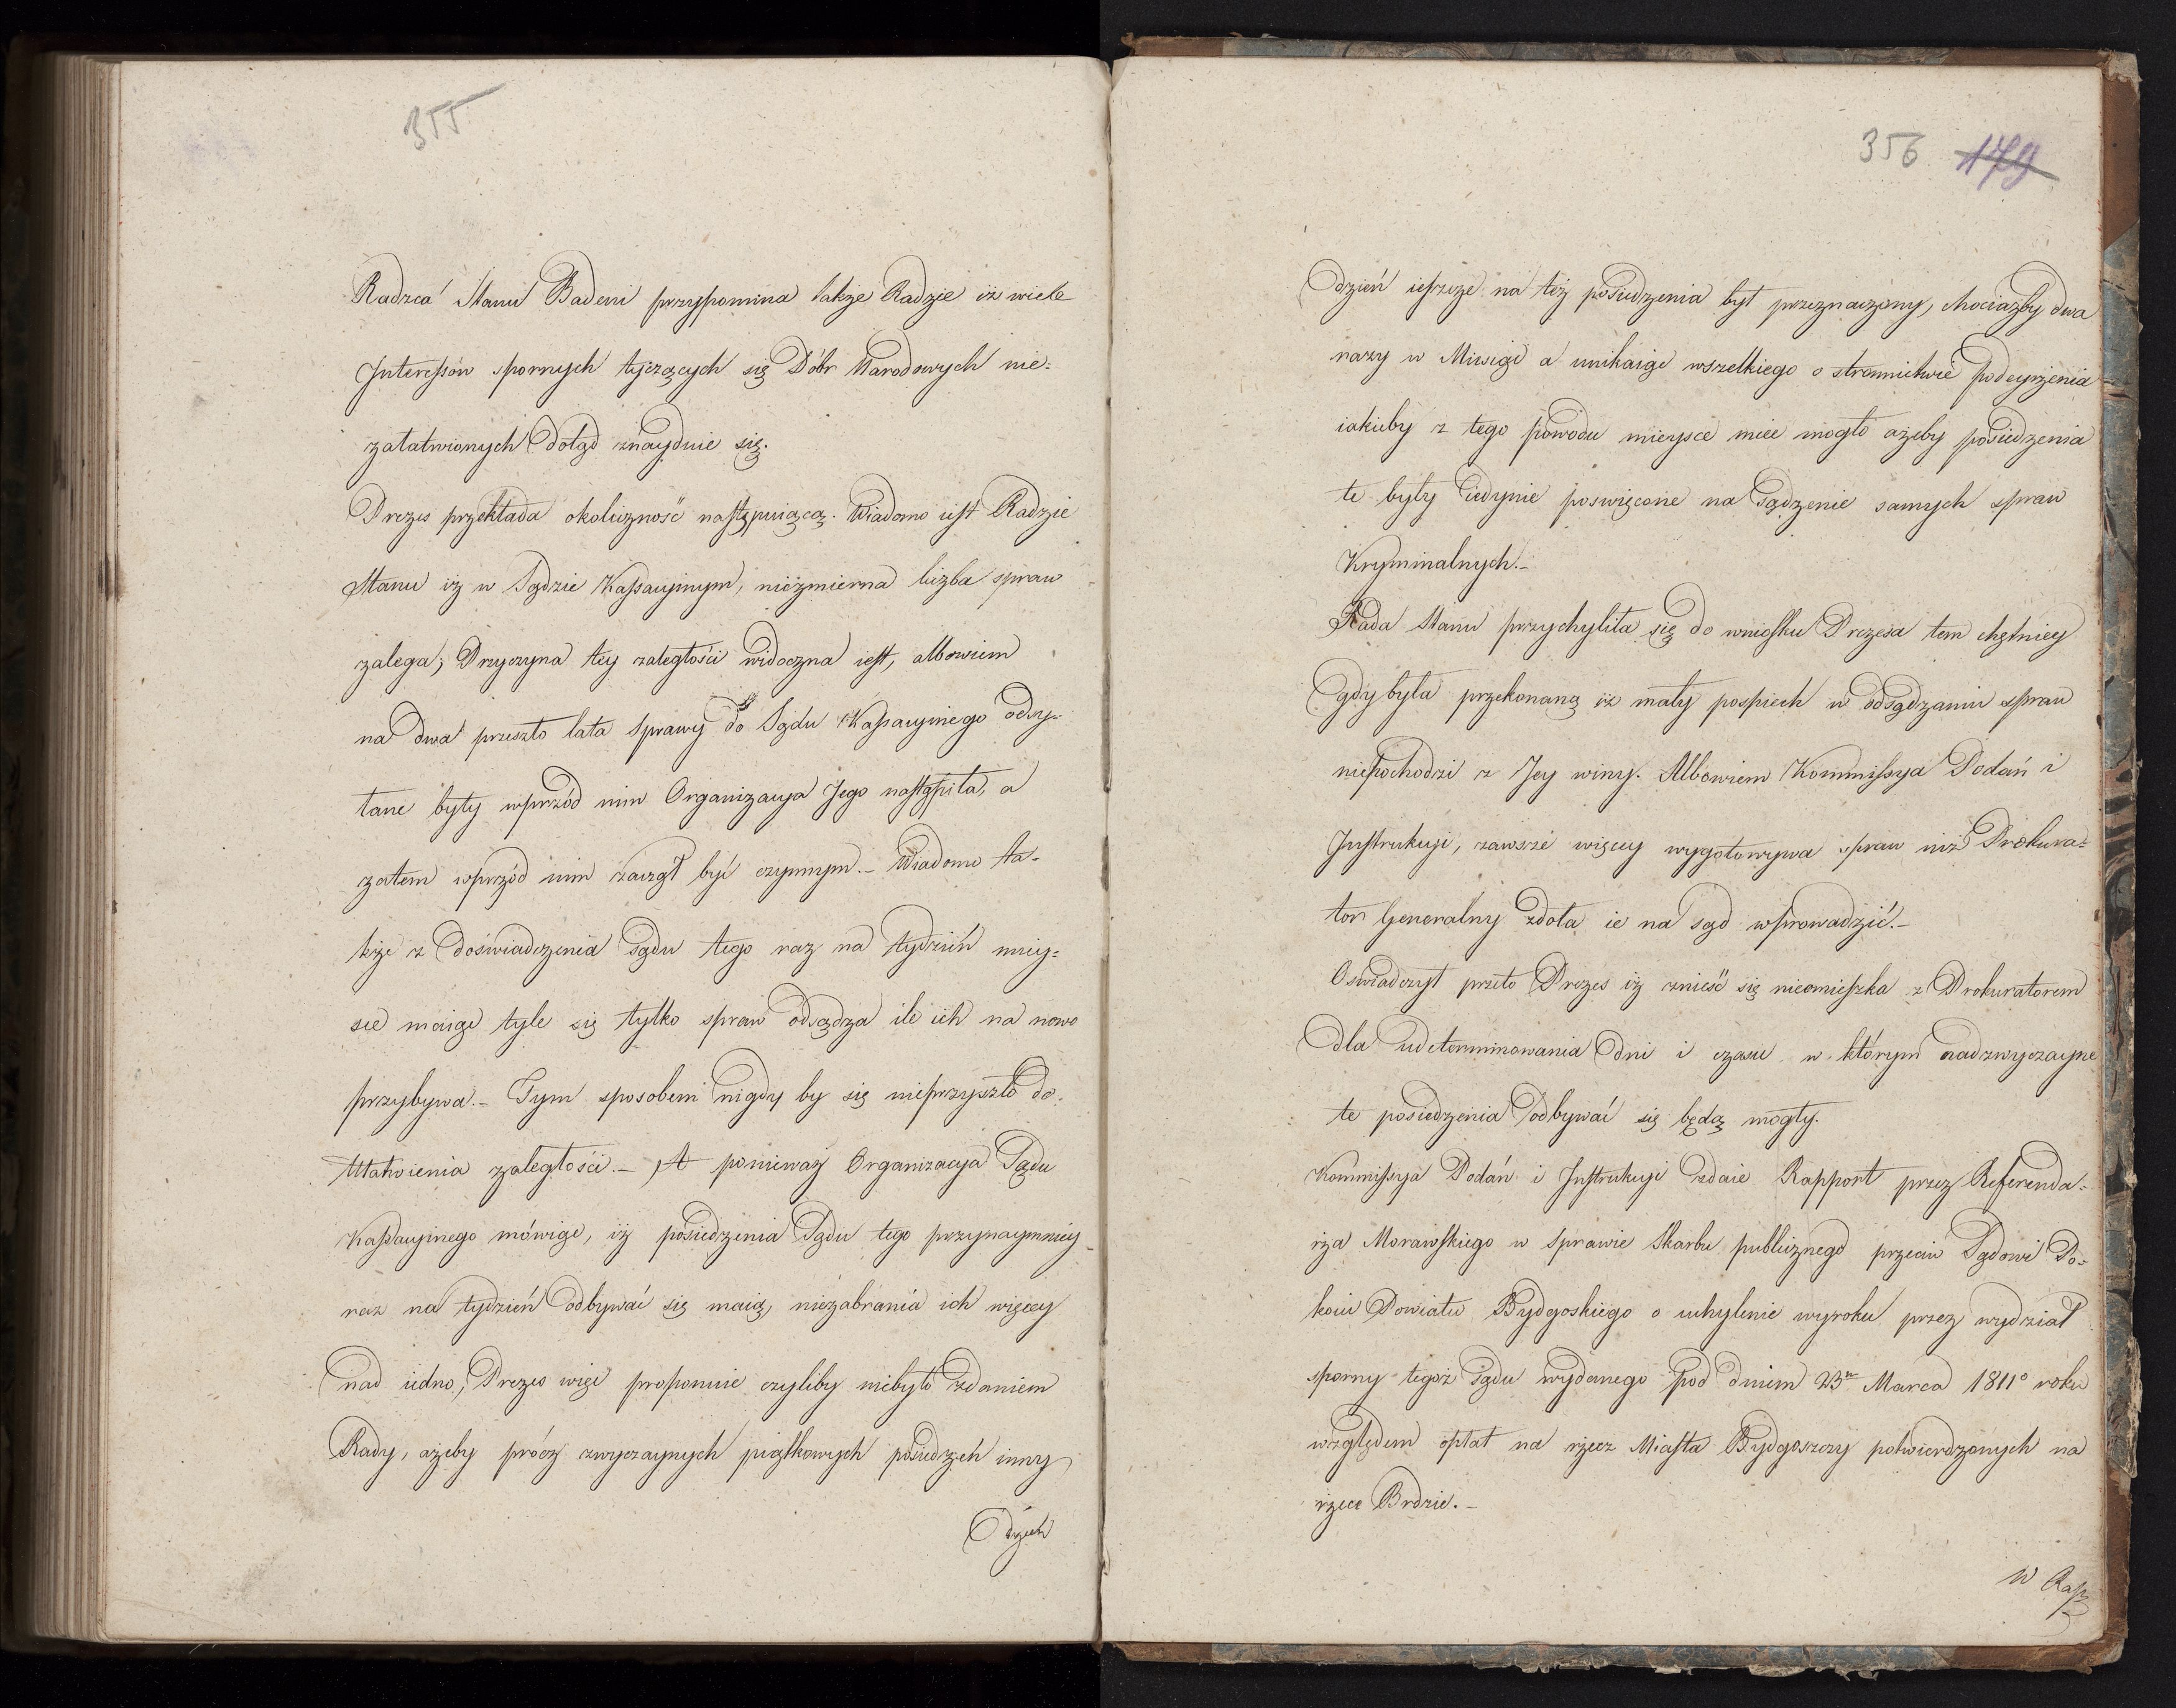 355
Radzca Stanu Badeni przypomina także Radzie iż wiele
Interessów spornych tyczących się Dóbr Narodowych nie=
załatwionych dotąd znayduie się.
Prezes przekłada okoliczność następuiącą. Wiadomo iest Radzie
Stanu iż w Sądzie Kassacyinym, niezmierna liczba spraw
zalega; Przyczyna tey zaległości widoczna iest, albowiem
na dwa przeszło lata sprawy do Sądu Kassacyinego odsy-
łane były wprzód nim Organizacya Jego nastąpiła, a
zatem wprzód nim zaczął być czynnym.- Wiadomo ta-
kże z doświadczenia Sądu tego raz na tydzień miey=
sce maiące tyle się tylko spraw odsądza ile ich na nowo
przybywa.- Tym sposobem nigdy by się nieprzyszło do
Ułatwienia zaległości.- A ponieważ Organizacya Sądu
Kassacyinego mówiąc, iż posiedzenia Sądu tego przynaymniey
raz na tydzień odbywać się maią, niezabrania ich więcey
nad iedno, Prezes więc proponuie czyliby niebyło zdaniem
Rady, ażeby prócz zwyczaynych piątkowych posiedzeń inny
Dzień
356 179
dzień ieszcze na też posiedzenia był przeznaczony, chociażby dwa
razy w Miesiąc a unikaiąc wszelkiego o stronnictwie podeyrzenia
iakieby z tego powodu mieysce mieć mogło ażeby posiedzenia
te były iedynie poswięcone na Sądzenie samych spraw
Kryminalnych.-
Rada Stanu przychyliła się do wniosku Prezesa tem chętniey
gdy była przekonaną iż mały pospiech w odsądzaniu spraw
niepochodzi z Jey winy. Albowiem Kommissya Podań i
Instrukcyi, zawsze więcey wygotowywa spraw niż Prokura=
tor Generalny zdoła ie na sąd wprowadzić.-
Oswiadczył przeto Prezes iż znieść się nieomieszka z Prokuratorem
dla udeterminowania dni i czasu w którym nadzwyczayne
te posiedzenia odbywać się będą mogły.
Kommissya Podań i Instrukcyi zdaie Rapport przez Referenda=
rza Morawskiego w sprawie Skarbu publicznego przeciw Sądowi Po=
koiu Powiatu Bydgoskiego o uchylenie wyroku przez wydział
sporny tegoż Sądu wydanego pod dniem 23 Marca 1811º roku
względem opłat na rzecz Miasta Bydgoszczy potwierdzonych na
rzece Brdzie.-
W Rap